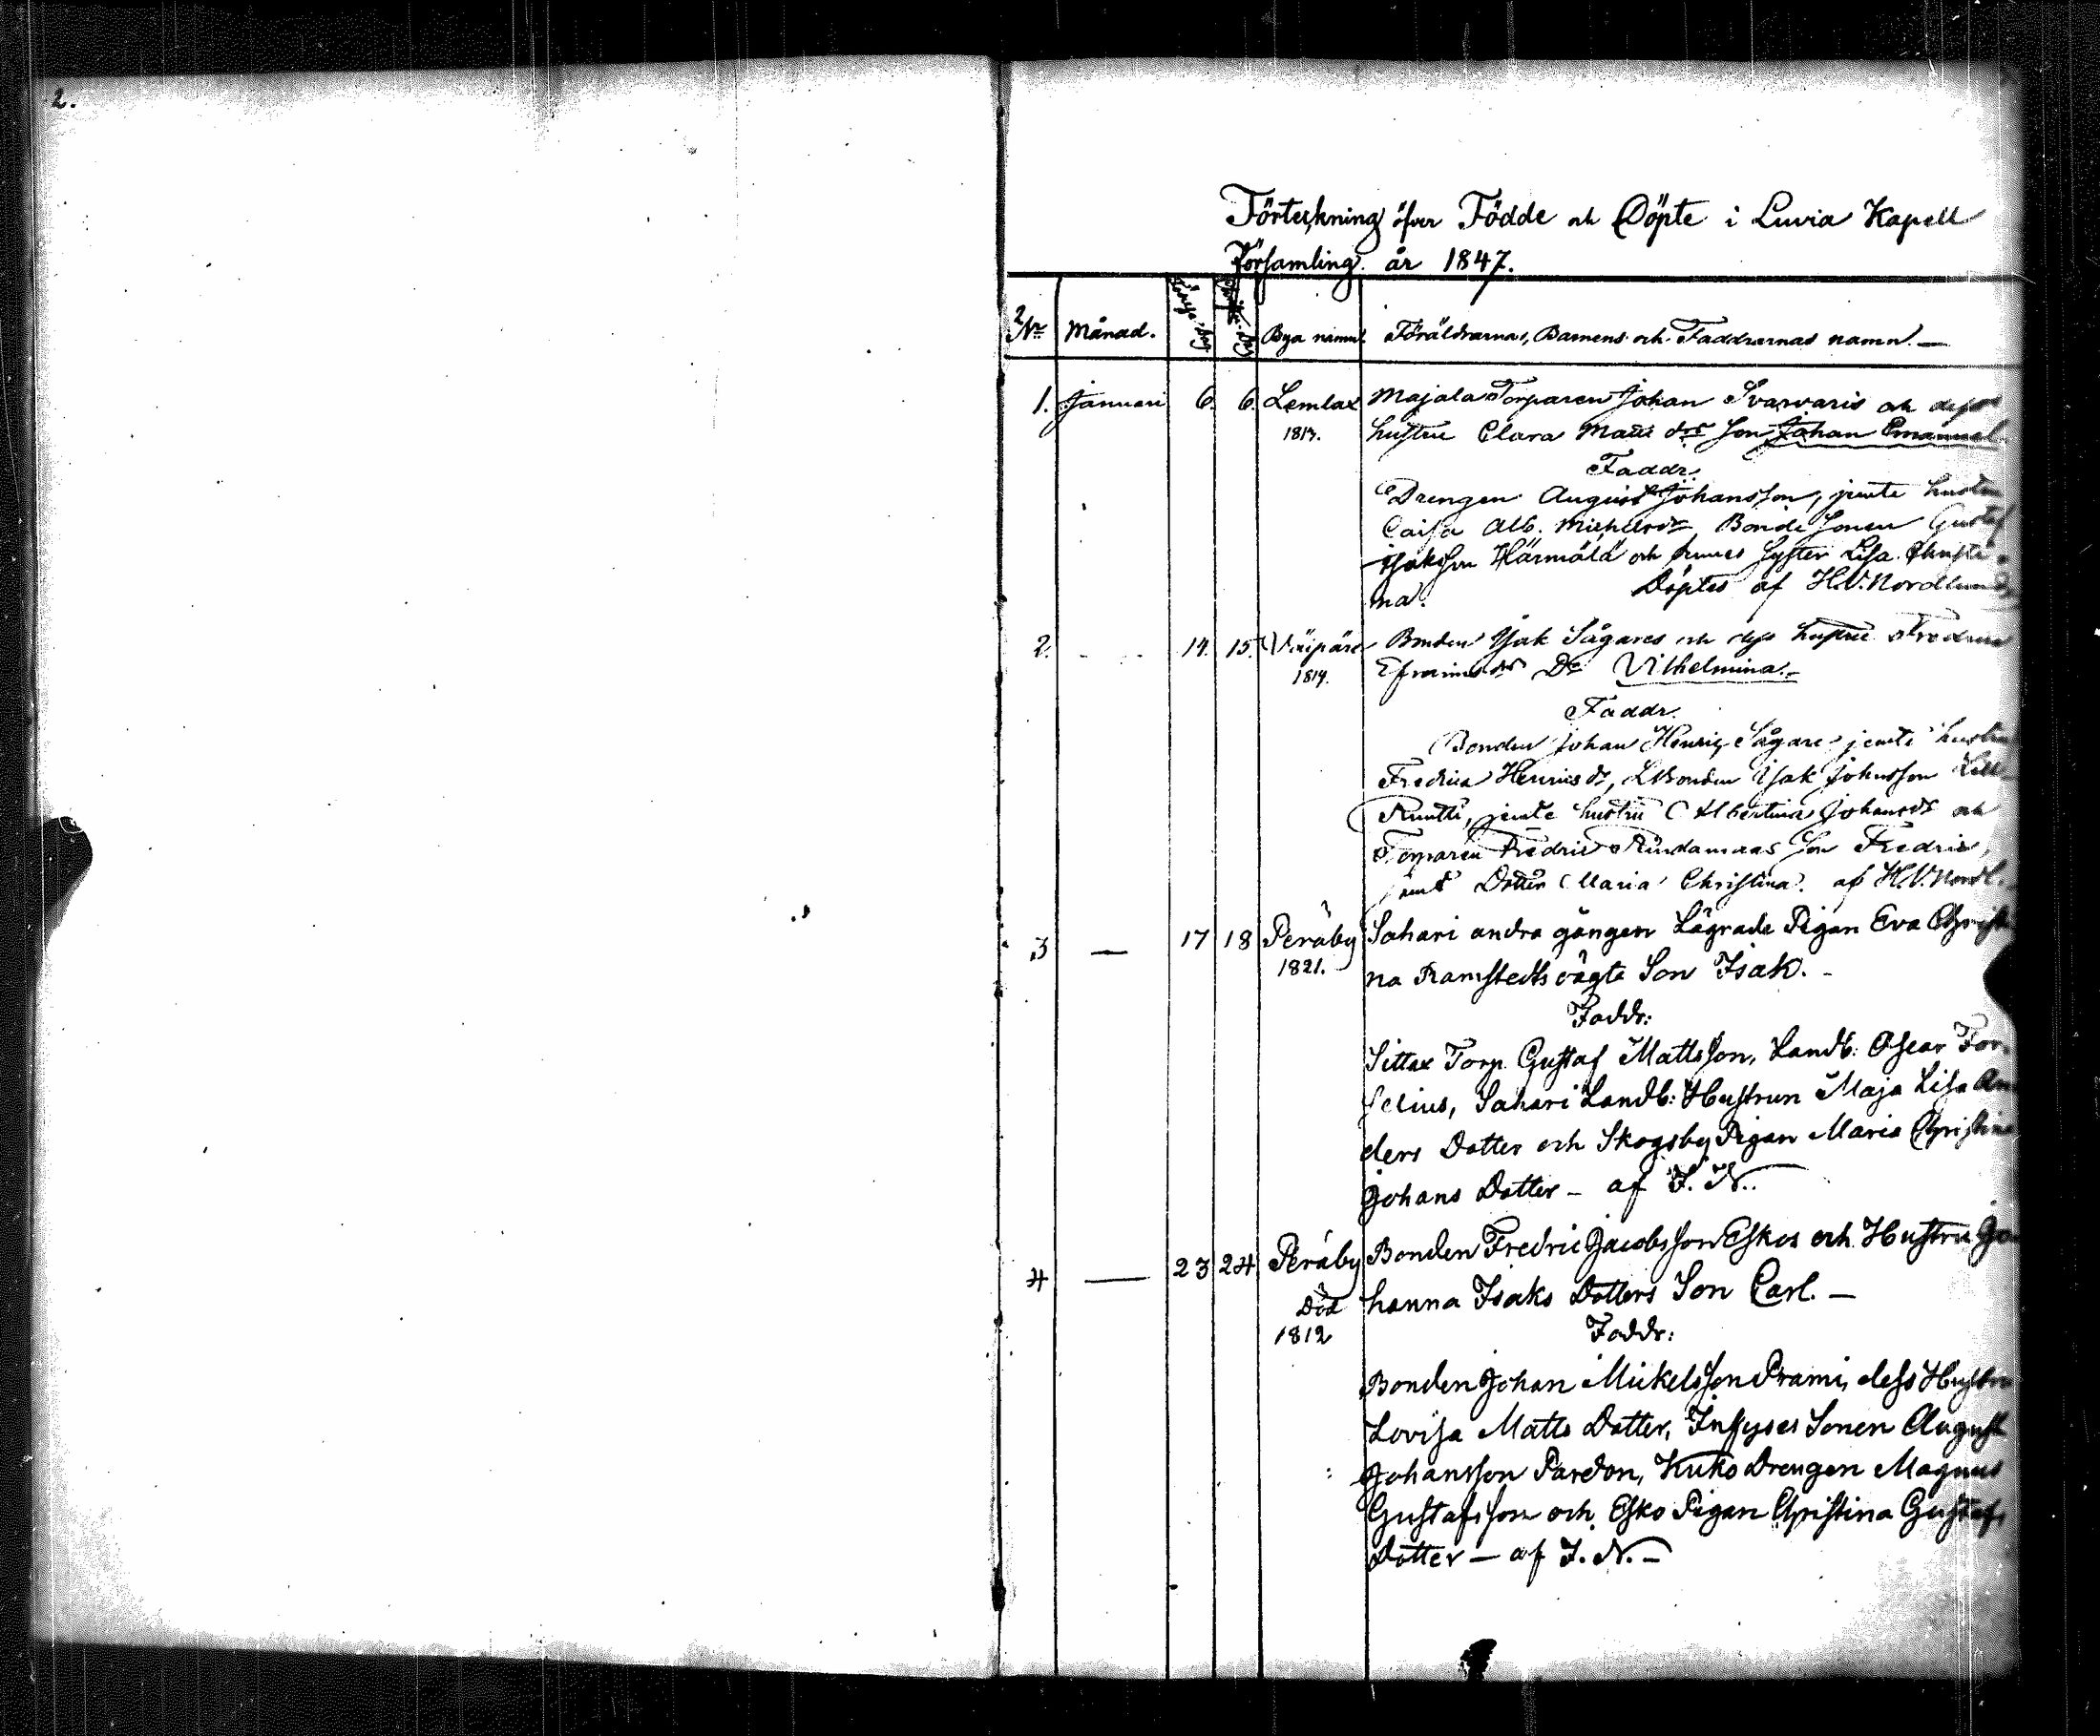 2.
Förteckning öfver Födde och Döpte i Luvia Kapell
Församling. år 1847.
No Månad. Födelse-dag Döpelse-dag Bya namn. Föräldrarnas, Barnens och Faddrarnas namn.—
1. Januari 6. 6. Lemlax Majala Torparen Johan Svarvaris och dess
1813. hustru Clara Matts dr Son Johan Emanuel.
Faddr.
Drengen August Johansson, jemte hustru
Caisa Alb. Michelsdr, Bonde Sonen Gustaf
Isaksson Härmälä och hans Syster Lisa Christi-
na. Döptes af H.V. Nordlund
2. 14. 15. Väipäre Bonden Isak Sågares och dess hustru Fredrica
1814. Efraims dr Dr Vilhelmina.-
Faddr.
Bonden Johan Henric Sågare, jemte hustru
Fredrica Henrics dr, L.Bonden Isak Johansson
Runtti, jemte hustru Albertina Johansdr och
Torparen Fredric Rindamaas Son Fredric,
jemt Dotter Maria Christina. af H.V. Nordl.
3 — 17 18 Peräby Sahari andra gången Lägrade Pigan Eva Christi
1821. na Ramstedts oägta Son Isak.-
Faddr:
Sittlax Torp. Gustaf Mattsson, Landb: Oscar For-
selius, Sahari Landb: Hustrun Maja Lisa An
ders Dotter och Skogsby Pigan Maria Christina
Johans Dotter - af I. N..
4 — 23 24 Peräby Bonden Fredric Jacobsson Eskos och Hustru Jo
Död hanna Isaks Dotters Son Carl.—
1812 Faddr:
Bonden Johan Mickelsson Prami, dess Hustru
Lovisa Matts Dotter, Inhyses Sonen August
Johansson Pardon, Kuko Drengen Magnus
Gustafsson och Esko Pigan Christina Gustafs
Dotter — af I. N.—